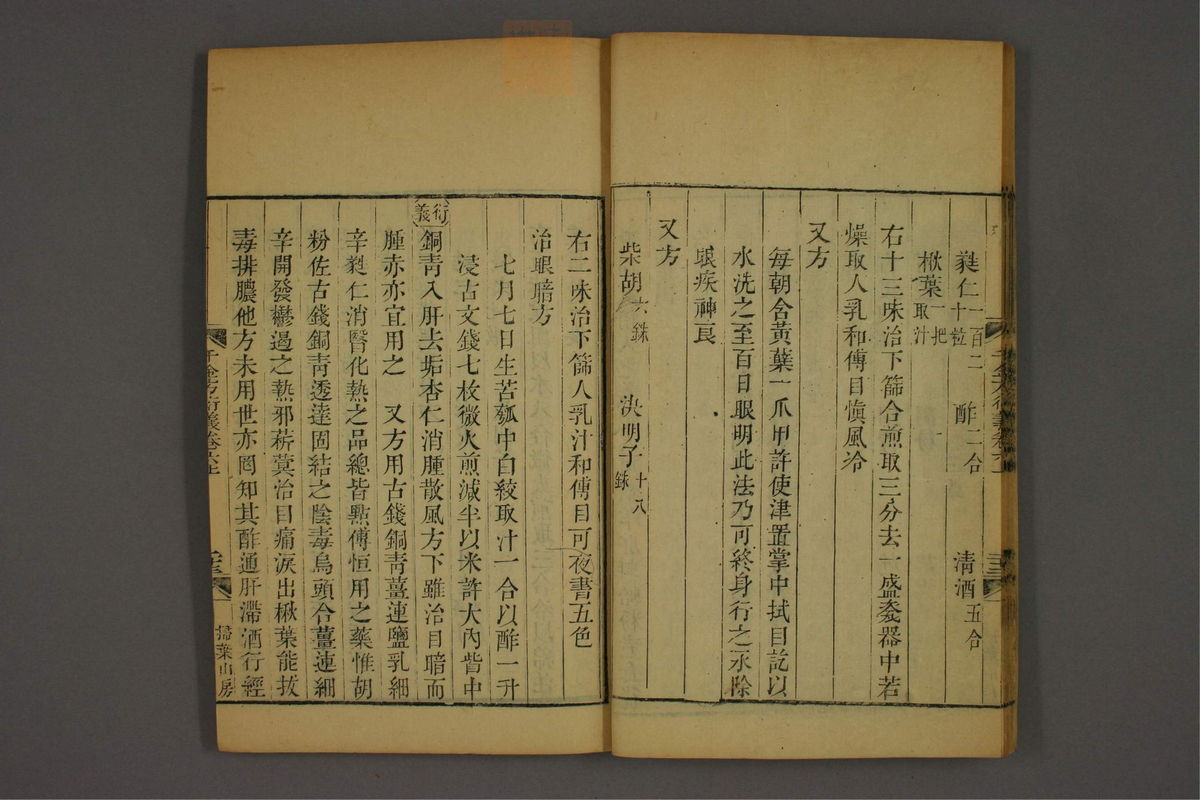 蕤仁一百二十粒　酢二合　清酒五合
楸葉一把取汁
右十三味治下篩合煎取三分去一盛瓷器中若
燥取人乳和傅目愼風冷
又方
每朝含黃蘗一爪甲許使津置掌中拭目訖以
水洗之至百日眼明此法乃可終身行之永除
眼疾神良
又方
柴胡六銖　決明子十八銖
右二味治下篩人乳汁和傅目可夜書五色
治眼暗方
七月七日生苦瓠中白絞取汁一合以酢一升
浸古文錢七枚微火煎減半以米許大內眥中
衍義
銅靑入肝去垢杏仁消腫散風方下雖治目暗而
腫赤亦宜用之　又方用古錢銅靑薑連鹽乳細
辛蕤仁消瞖化熱之品總皆點傅恒用之藥惟胡
粉佐古錢銅靑透達固結之陰毒烏頭合薑連細
辛開發鬱遏之熱邪菥蓂治目痛淚出楸葉能拔
毒排膿他方未用世亦罔知其酢通肝滯酒行經
千金方衍義卷六上
掃葉山房